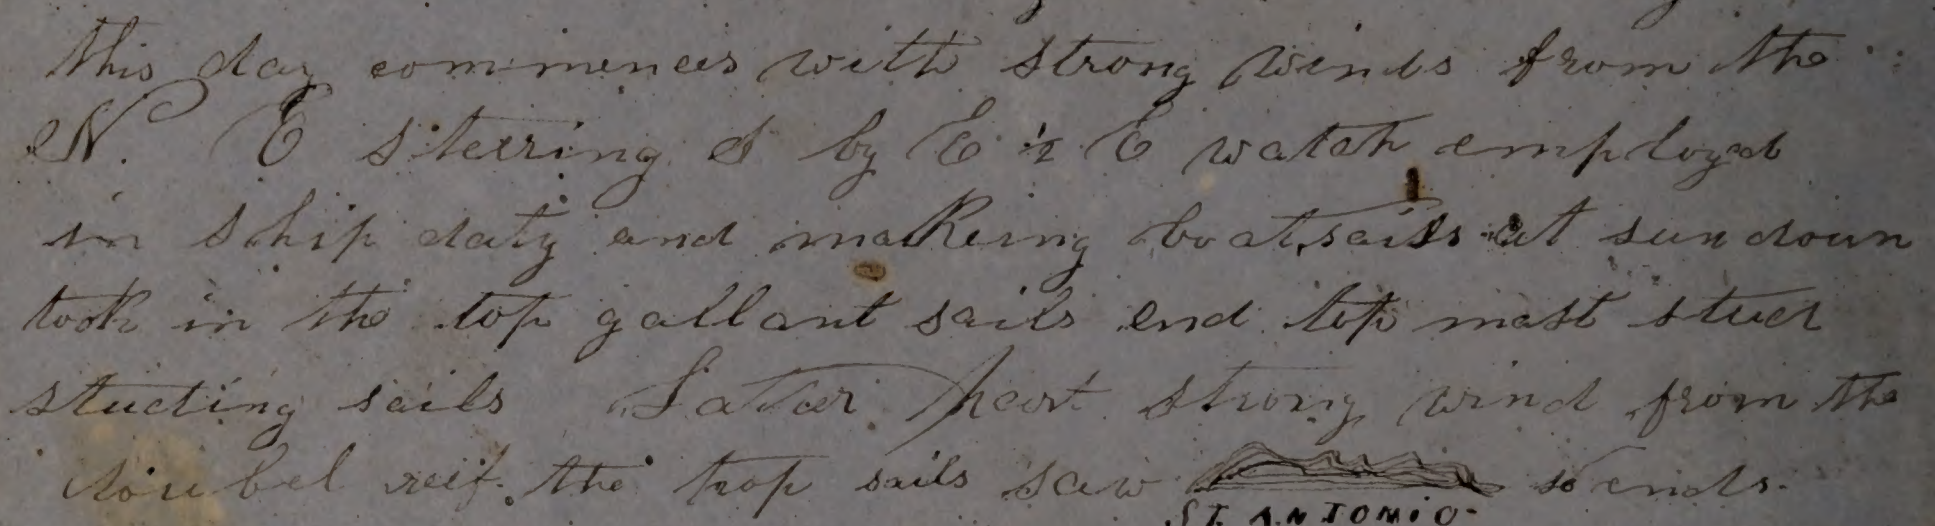 this day commences with strong winds from the
N. E steering S by E ½ E watch employed
in Ship duty and making boat sails at sundown
took in the top gallant sails end top mast stud
studing sails Latter part strong wind from the
doubel reif. the trop sails saw so ends.
ST. ANTONIO-